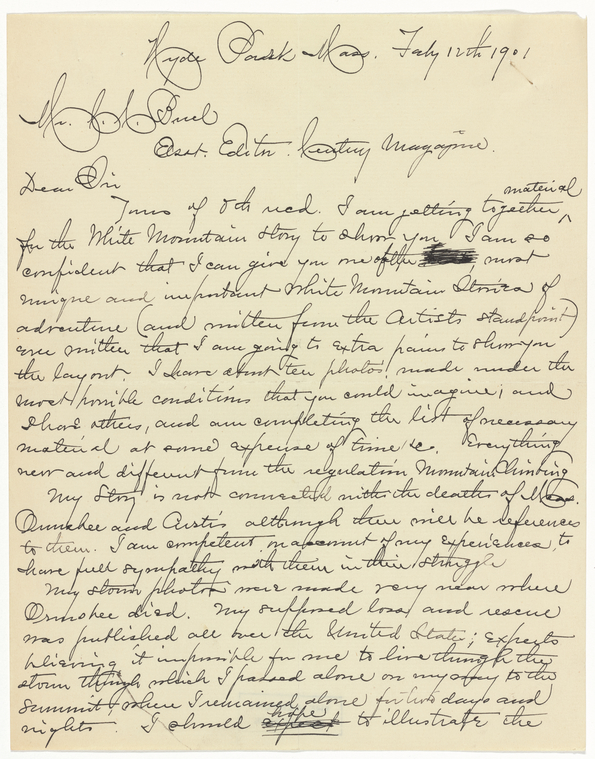 Hyde Park Mass. Feby 12th 1901
Mr. Buel
Asst. Editor. Century Magazine.
Dear Sir
material
Yours of 8th recd. I am getting together ^
for the White Mountain Story to show you. I am so
confident that I can give you one of the most
unique and important White Mountain Stories of
adventure (and written from the Artists standpoint)
ever written that I am going to extra pains to show you
the layout. I have about ten photos, made under the
most horrible conditions that you could imagine, and
I have others, and am completing the list of necessary
material at some expense of time &c. Everything
new and different from the regulation Mountain Climbing
My Story is not connected with the deaths of Mess.
Ormsbee and Curtis although there will be references
to them. I am competent, on account of my experiences, to
have full sympathy with them in their struggle
My storm photos were made very near where
Ormsbee died. My supposed loss and rescue
was published all over the United States; experts
believing it impossible for me to live through the
storm through which I passed alone on my way to the
summit, where I remained alone for two days and
hope
nights. I should to illustrate the